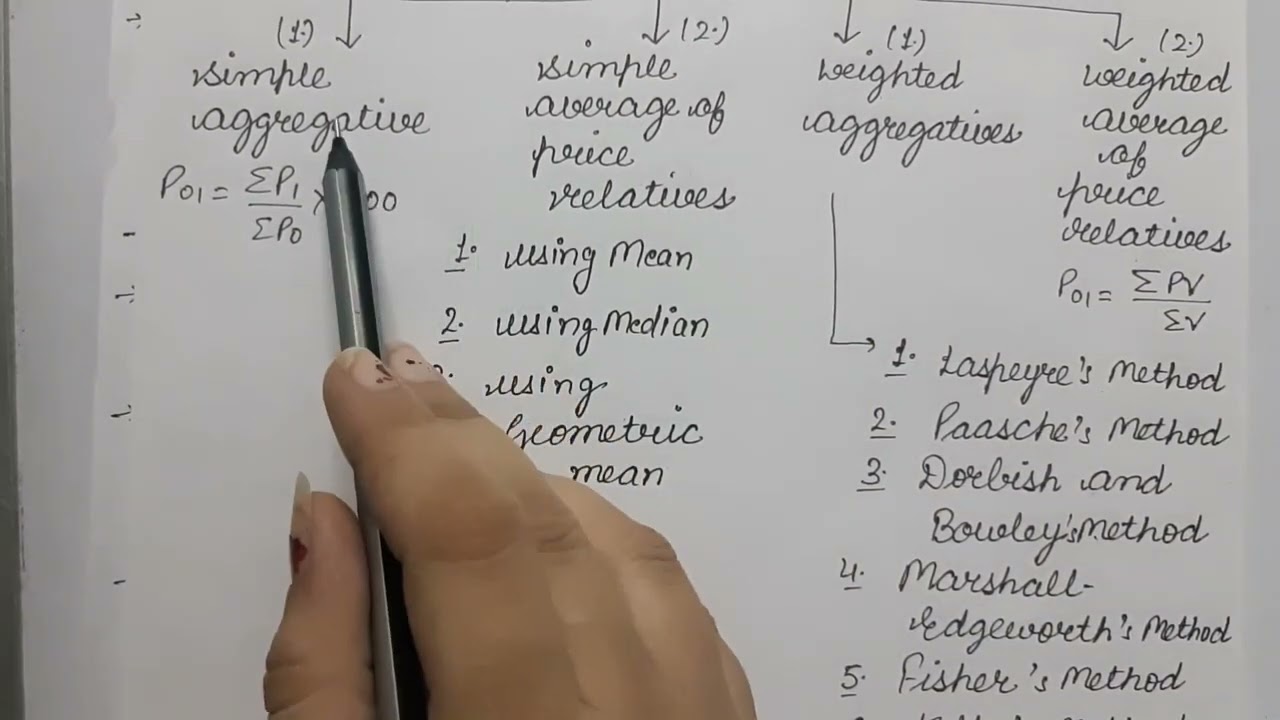 (1.)
simple
aggregative
P01 = ΣP1 / ΣP0 ×
(2.)
simple
average of
price
relatives
1. using Mean
2. using Median
using
Geometric
mean
(1.)
weighted
aggregatives
1. Laspeyre's Method
2. Paasche's Method
3. Dorbish and
Bowley's Method
4. Marshall-
Edgeworth's Method
5. Fisher's Method
(2.)
weighted
average
of
price
relatives
P01 = ΣPV / ΣV